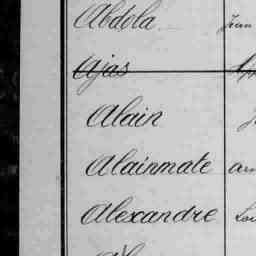 Abdola Jean
Ajas
Alain
Alainmate
Alexandre